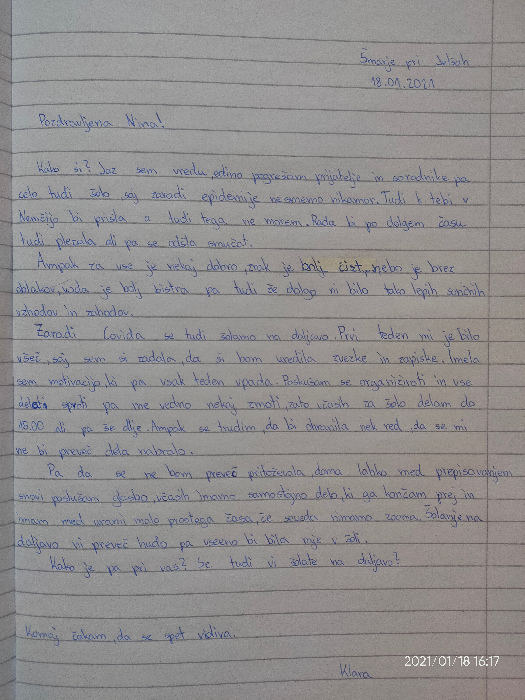 Šmarje pri Jelšah
18.01.2021
Pozdravljena Nina!
Kako si? Jaz sem vredu, edino pogrešam prijatelje in sorodnike pa
celo tudi šolo saj zaradi epidemije ne smemo nikamor. Tudi k tebi v
Nemčijo bi prišla a tudi tega ne morem. Rada bi po dolgem času
tudi plezala ali pa se odšla smučat.
Ampak za vse je nekaj dobro, zrak je bolj čist, nebo je brez
oblakov, voda je bolj bistra pa tudi že dolgo ni bilo tako lepih sončnih
vzhodov in zahodov.
Zaradi Covida se tudi šolamo na daljavo. Prvi teden mi je bilo
všeč, saj sem si zadala, da si bom uredila zvezke in zapiske. Imela
sem motivacijo, ki pa vsak teden upada. Poskušam se organizirati in vse
delati sproti pa me vedno nekaj zmoti, zato včasih za šolo delam do
15.00 ali pa še dlje. Ampak se trudim, da bi ohranila nek red, da se mi
ne bi preveč dela nabralo.
Pa da se ne bom preveč pritoževala, doma lahko med prepisovanjem
snovi poslušam glasbo, včasih imamo samostojno delo, ki ga končam prej in
imamo med urami malo prostega časa, če seveda nimamo zooma. Šolanje na
daljavo ni preveč hudo pa vseeno bi bila raje v šoli.
Kako je pa pri vas? Se tudi vi šolate na daljavo?
Komaj čakam, da se spet vidiva.
Klara
2021/01/18 16:17